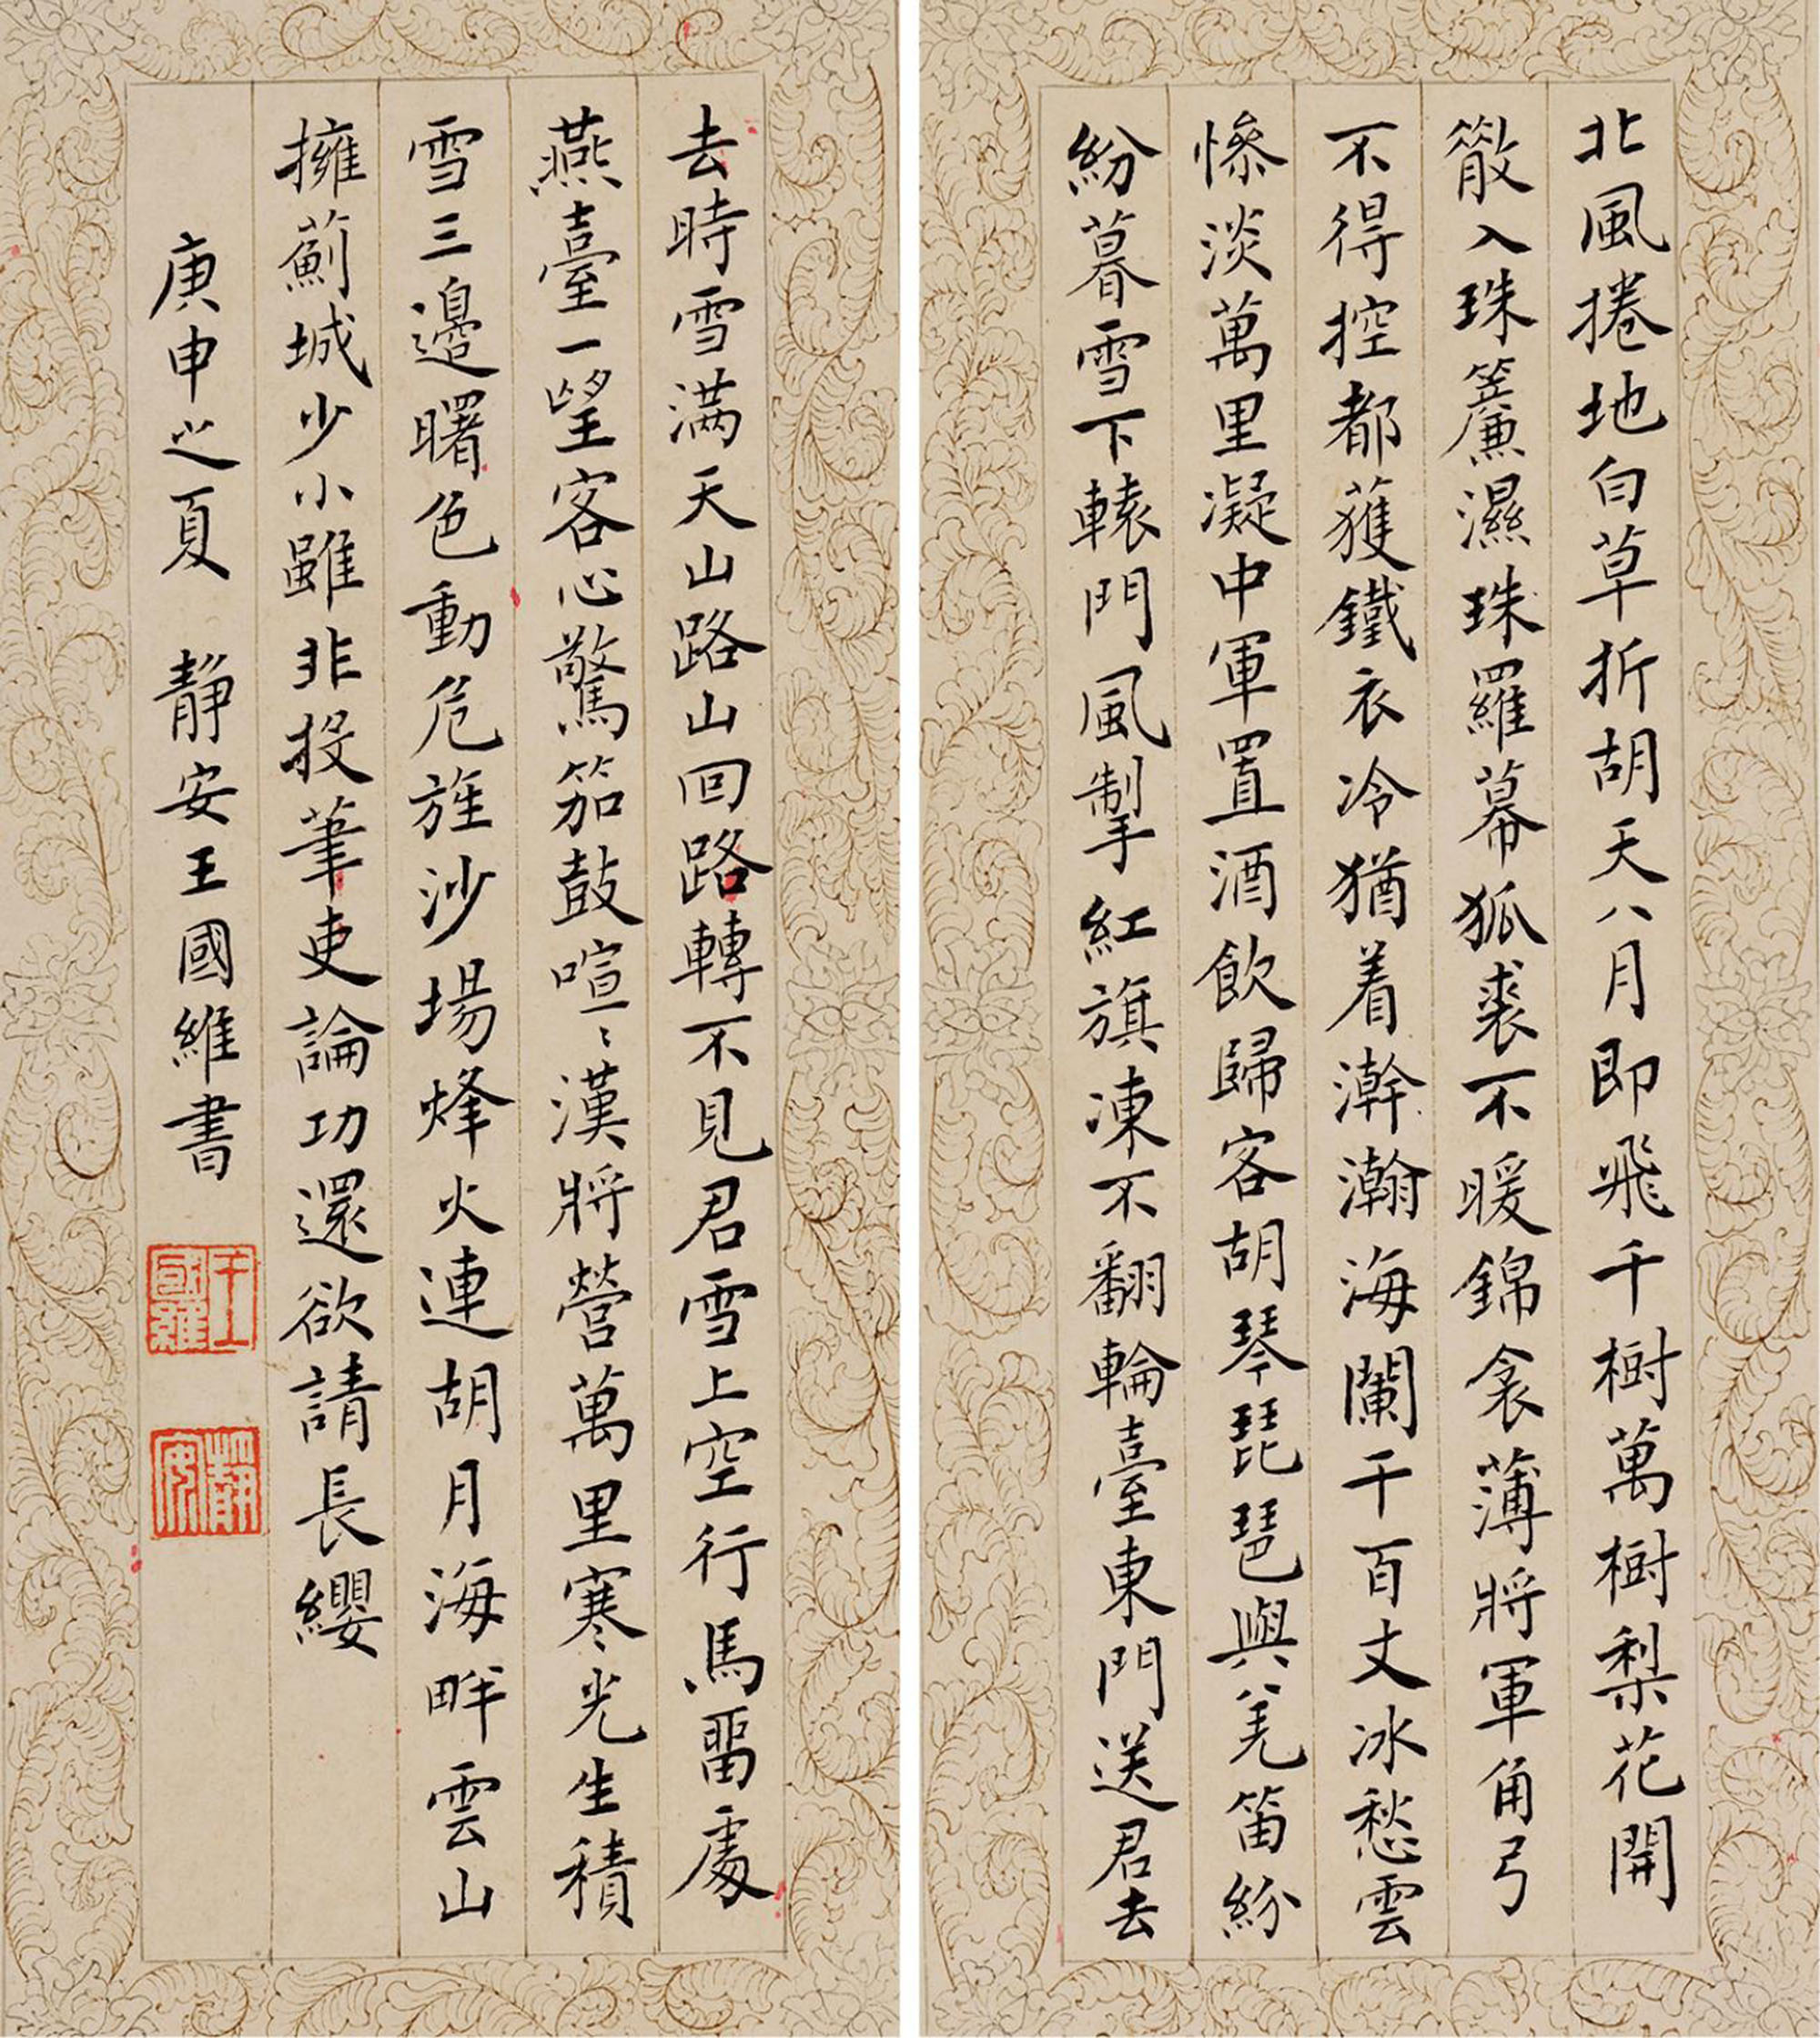 北風捲地白草折胡天八月即飛千樹萬樹梨花開
散入珠簾濕珠羅幕狐裘不暖錦衾薄將軍角弓
不得控都護鐵衣冷猶着瀚瀚海闌干百丈冰愁雲
慘淡萬里凝中軍置酒飲歸客胡琴琵琶與羌笛紛
紛暮雪下轅門風掣紅旗凍不翻輪臺東門送君去
去時雪滿天山路山回路轉不見君雪上空行馬留處
燕臺一望客心驚笳鼓喧〻漢將營萬里寒光生積
雪三邊曙色動危旌沙場烽火連胡月海畔雲山
擁薊城少小雖非投筆吏論功還欲請長纓
庚申之夏 靜安王國維書
王國維
靜安